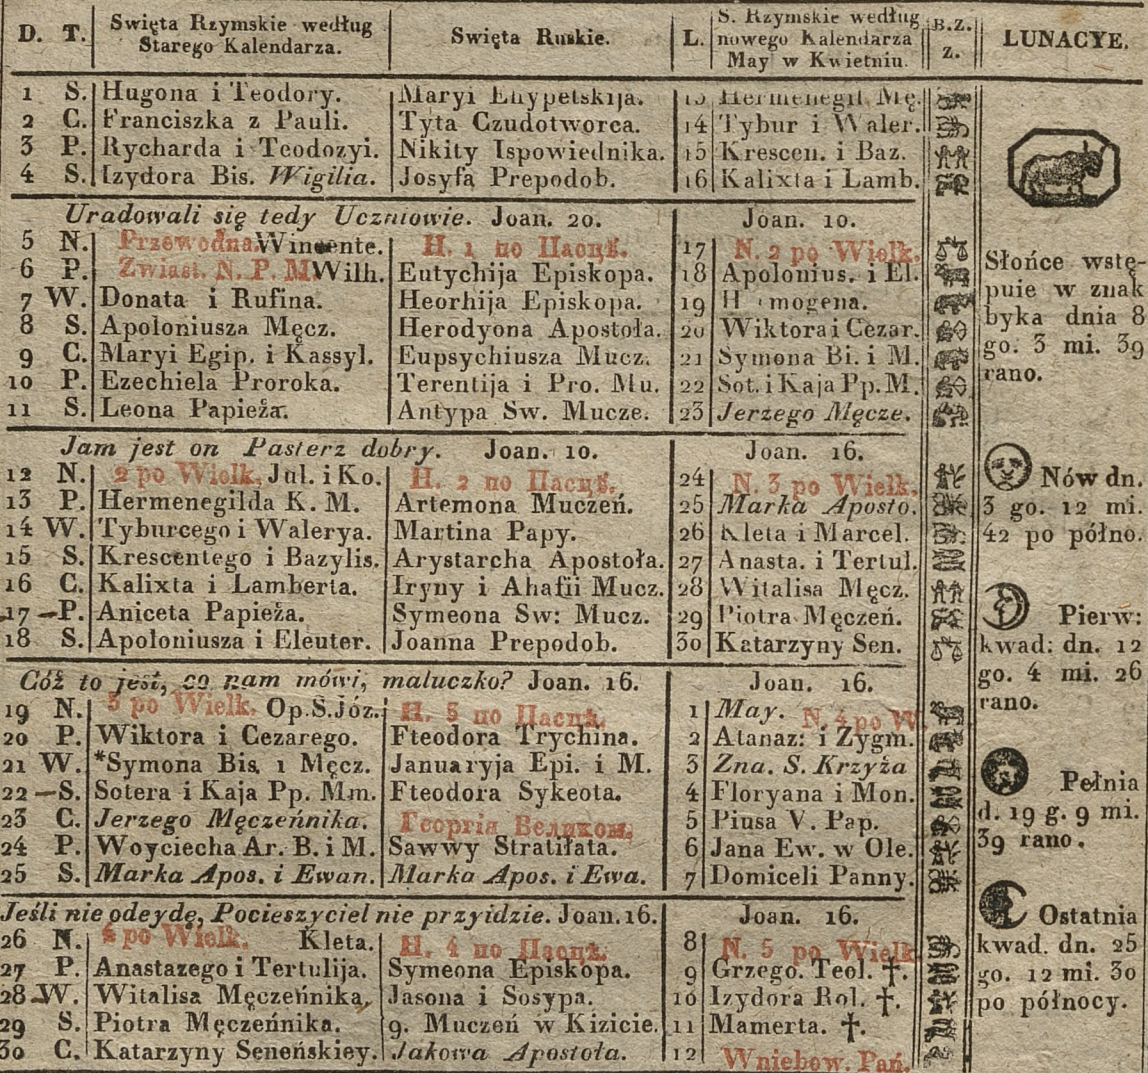 D. T. Swięta Rzymskie według Starego Kalendarza. Swięta Ruskie. L. S. Rzymskie według nowego Kalendarza May w Kwietniu. B.Z. Z. LUNACYE.
1 S. Hugona i Teodory. Maryi Ehypetskija. 13 Hermenegil. Mę.
2 C. Franciszka z Pauli. Tyta Czudotworca. 14 Tybur i Waler.
3 P. Rycharda i Teodozyi. Nikity Ispowiednika. 15 Krescen. i Baz.
4 S. Izydora Bis. Wigilia. Josyfa Prepodob. 16 Kalixta i Lamb.
Uradowali się tedy Uczniowie. Joan. 20. Joan. 10.
5 N. Przewodna Wincente. Н. 1 по Пасцѣ. 17 N. 2 po Wielk.
6 P. Zwiast. N. P. M Wilh. Eutychija Episkopa. 18 Apolonius. i El.
7 W. Donata i Rufina. Heorhija Episkopa. 19 H mogena.
8 S. Apoloniusza Męcz. Herodyona Apostoła. 20 Wiktora i Cezar.
9 C. Maryi Egip. i Kassyl. Eupsychiusza Mucz. 21 Symona Bi. i M.
10 P. Ezechiela Proroka. Terentija i Pro. Mu. 22 Sot. i Kaja Pp. M.
11 S. Leona Papieża. Antypa Sw. Mucze. 23 Jerzego Męcze.
Jam jest on Pasterz dobry. Joan. 10. Joan. 16.
12 N. 2 po Wielk. Jul. i Ko. Н. 2 по Пасцѣ. 24 N. 3 po Wielk.
13 P. Hermenegilda K. M. Artemona Muczeń. 25 Marka Aposto.
14 W. Tyburcego i Walerya. Martina Papy. 26 Kleta i Marcel.
15 S. Krescentego i Bazylis. Arystarcha Apostoła. 27 Anasta. i Tertul.
16 C. Kalixta i Lamberta. Iryny i Ahafii Mucz. 28 Witalisa Męcz.
17 P. Aniceta Papieża. Symeona Sw: Mucz. 29 Piotra Męczeń.
18 S. Apoloniusza i Eleuter. Joanna Prepodob. 30 Katarzyny Sen.
Cóż to jest, co nam mówi, maluczko? Joan. 16. Joan. 16.
19 N. 3 po Wielk. Op. S. Józ. Н. 3 по Пасцѣ. 1 May. N. 4 po W
20 P. Wiktora i Cezarego. Fteodora Trychina. 2 Atanaz: i Zygm.
21 W. *Symona Bis. i Męcz. Januaryja Epi. i M. 3 Zna. S. Krzyża
22 S. Sotera i Kaja Pp. Mm. Fteodora Sykeota. 4 Floryana i Mon.
23 C. Jerzego Męczeńnika. Георгіа Великом. 5 Piusa V. Pap.
24 P. Woyciecha Ar. B. i M. Sawwy Stratiłata. 6 Jana Ew. w Ole.
25 S. Marka Apos. i Ewan. Marka Apos. i Ewa. 7 Domiceli Panny.
Jeśli nie odeydę, Pocieszyciel nie przyidzie. Joan. 16. Joan. 16.
26 N. 4 po Wielk. Kleta. Н. 4 по Пасцѣ. 8 N. 5 po Wielk
27 P. Anastazego i Tertulija. Symeona Episkopa. 9 Grzego. Teol. †.
28 W. Witalisa Męczeńnika. Jasona i Sosypa. 10 Izydora Rol. †.
29 S. Piotra Męczeńnika. 9. Muczeń w Kizicie. 11 Mamerta. †.
30 C. Katarzyny Seneńskiey. Jakowa Apostoła. 12 Wniebow. Pań.
Słońce wstę-
puie w znak
byka dnia 8
go. 3 mi. 39
rano.
Nów dn.
3 go. 12 mi.
42 po północ.
Pierw:
kwad: dn. 12
go. 4 mi. 26
rano.
Pełnia
d. 19 g. 9 mi.
39 rano.
Ostatnia
kwad. dn. 25
go. 12 mi. 30
po północy.